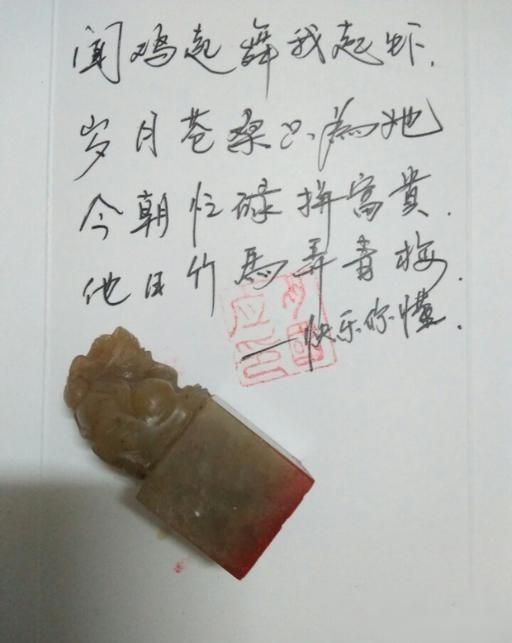 闻鸡起舞我起虾.
岁月苍桑只為她
今朝忙碌拼富貴.
他日竹馬弄青梅.
——快乐你懂.